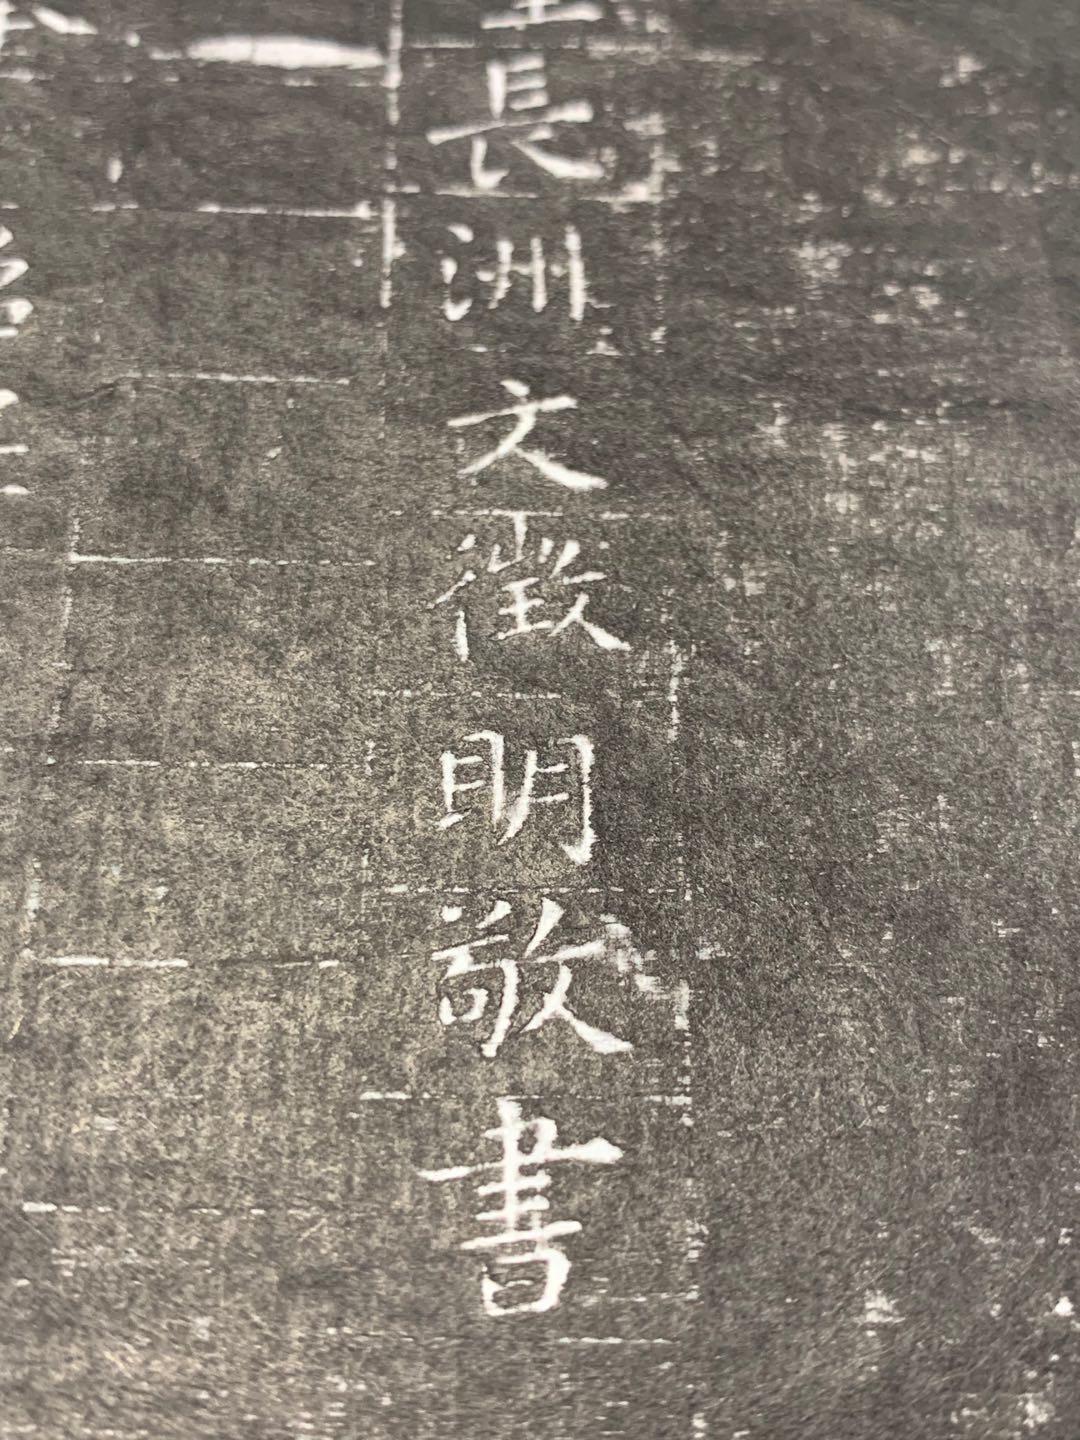 長洲文徵明敬書